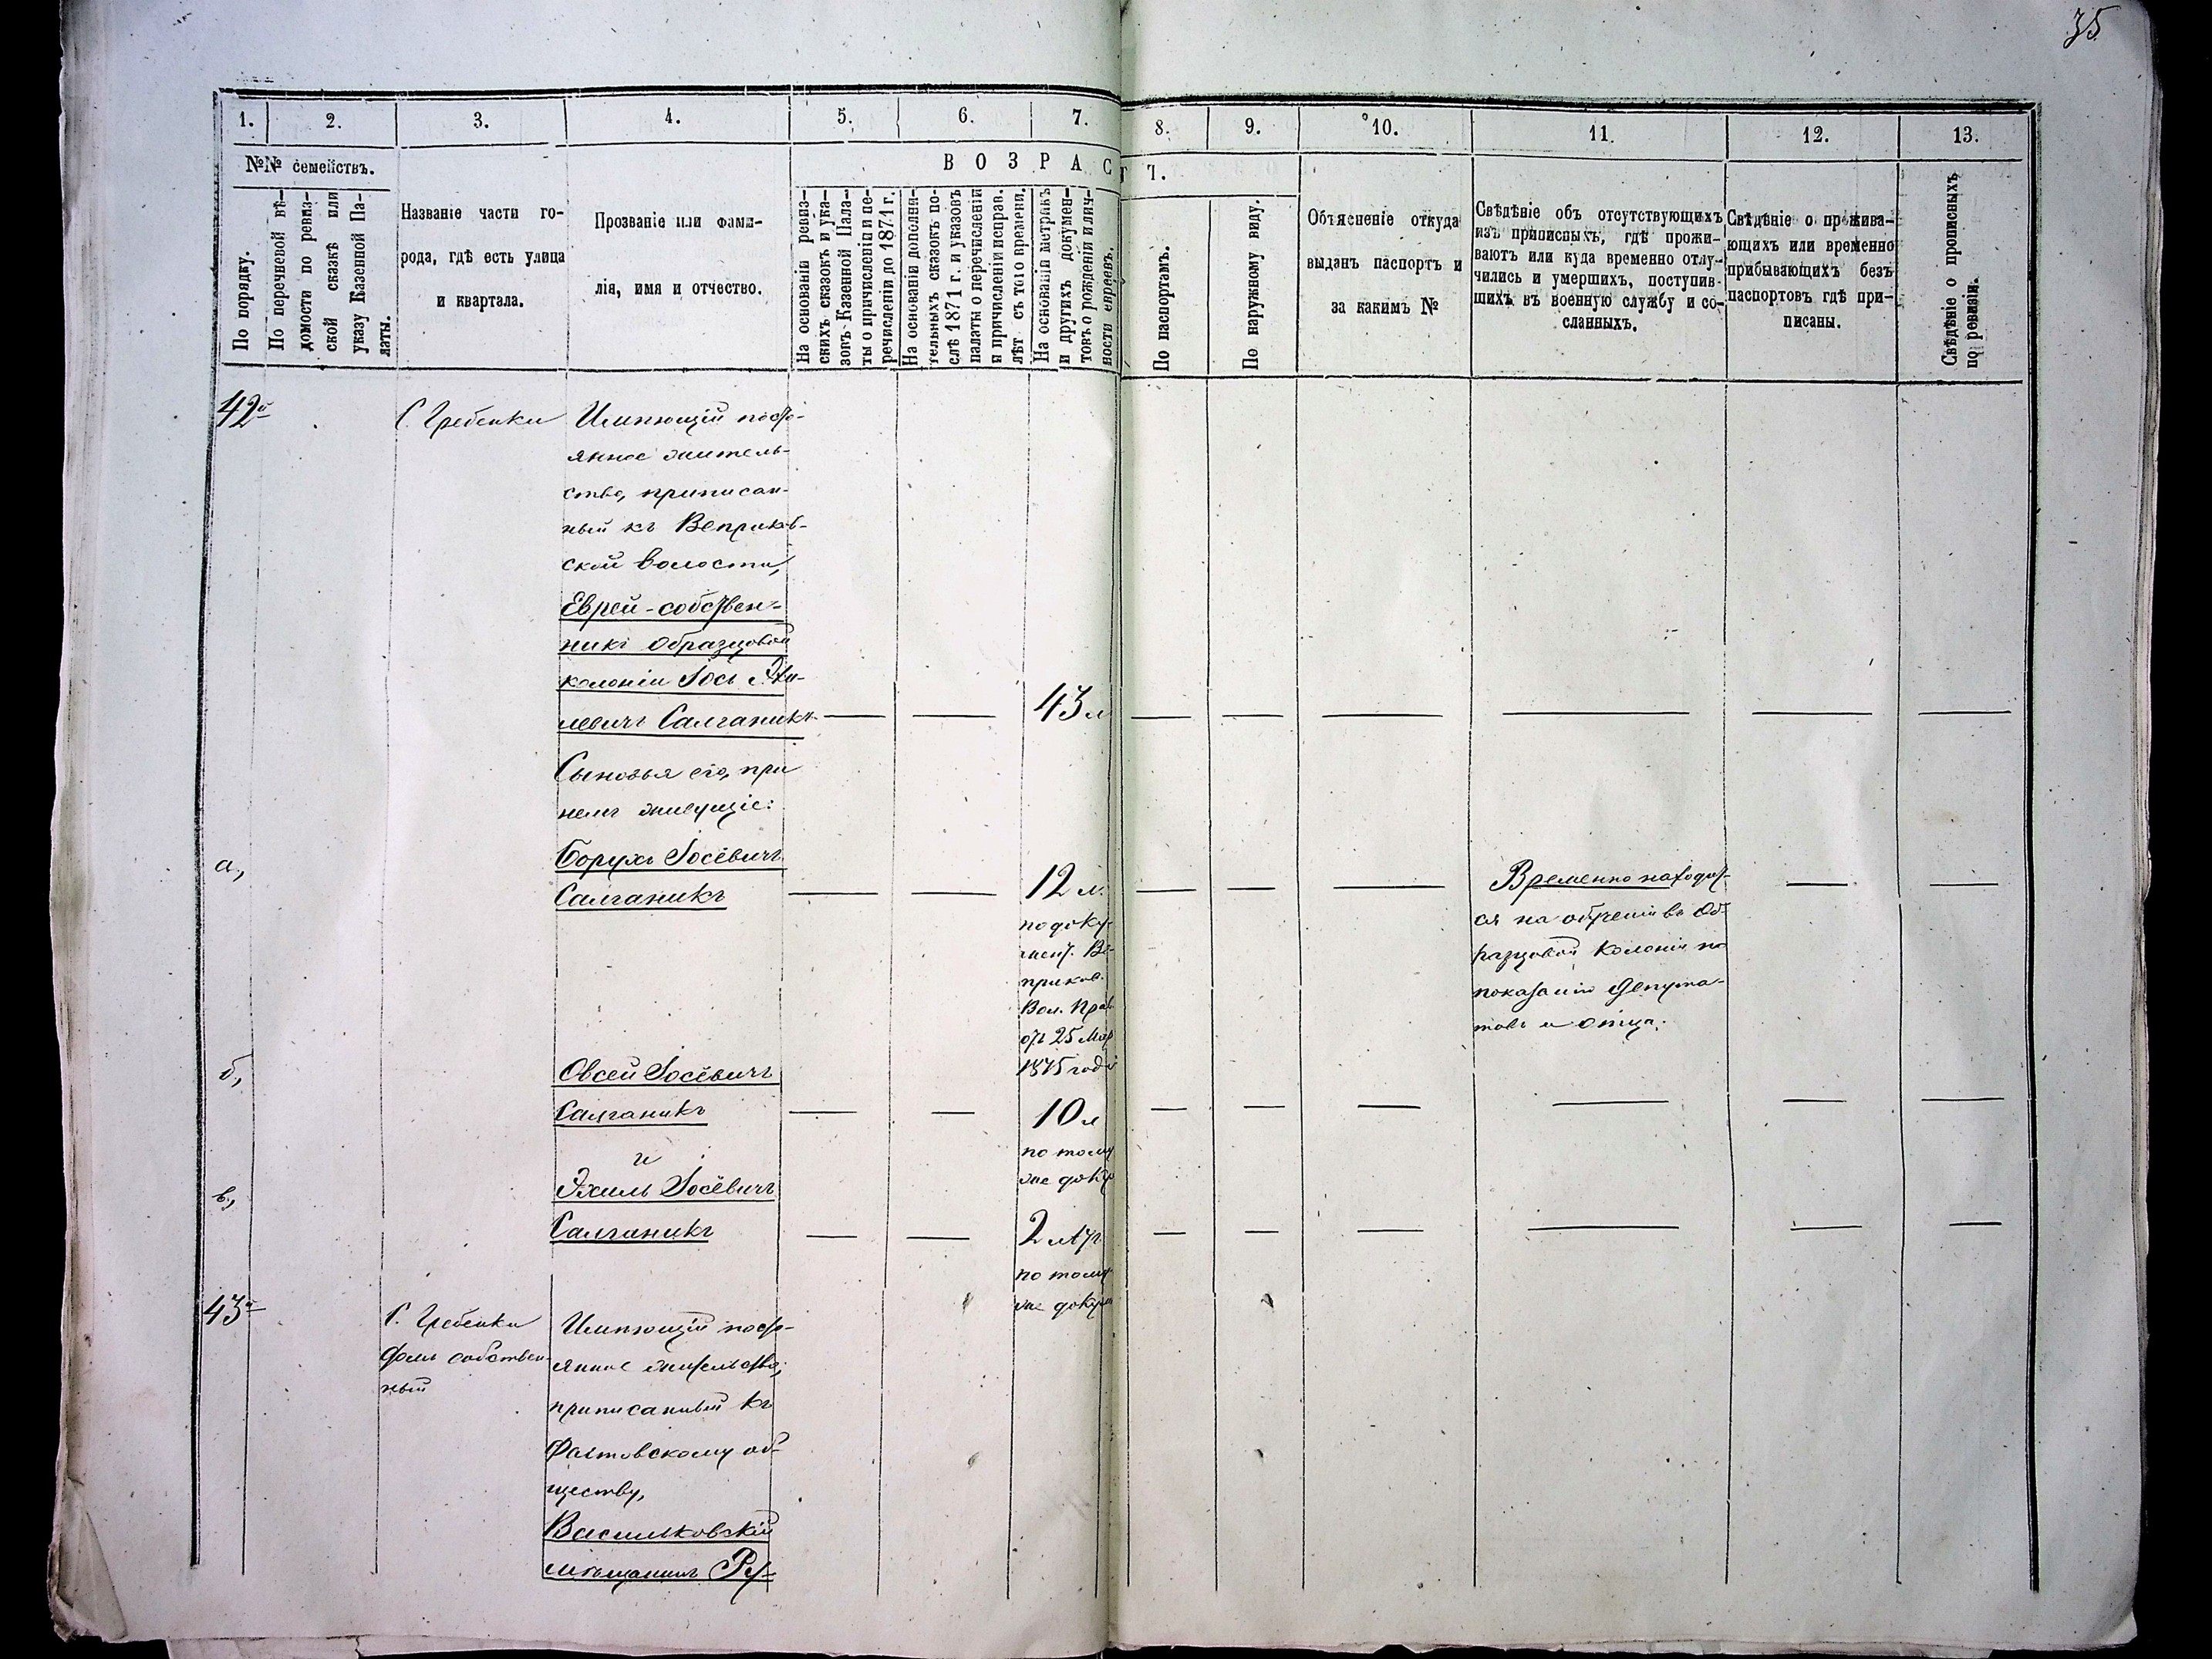 35
1. 2. 3. 4. 5. 6. 7. 8. 9. 10. 11. 12. 13.
№№ семействъ.
ВОЗРАСТ Ъ.
По порядку.
По перечневой вѣ-
домости по ревиз-
ской сказкѣ или
указу Казенной Па-
латы.
Названіе части го-
рода, гдѣ есть улица
и квартала.
Прозваніе или фами-
лія, имя и отчество.
На основаніи ревиз-
скихъ сказокъ и ука-
зовъ Казенной Пала-
ты о причисленіи и пе-
речисленіи до 1871 г.
На основаніи дополни-
тельныхъ сказокъ по-
слѣ 1871 г. и указовъ
палаты о перечисленіи
и причисленіи исправ.
лѣт съ того времени.
На основаніи метрикъ
и другихъ докумен-
товъ о рожденіи и лич-
ности евреевъ.
По паспортамъ.
По наружному виду.
Объясненіе откуда
выданъ паспортъ и
за какимъ №
Свѣдѣніе объ отсутствующихъ
изъ приписныхъ, гдѣ прожи-
ваютъ или куда временно отлу-
чились и умершихъ, поступив-
шихъ въ военную службу и со-
сланныхъ.
Свѣдѣніе о прожива-
ющихъ или временно
прибывающихъ безъ
паспортовъ гдѣ при-
писаны.
Свѣдѣніе о прописныхъ
по ревизіи.
42й
С. Гребенки
Имѣющій посто-
янное житель-
ство, приписан-
ный къ Веприков-
ской волости,
Еврей-собствен-
никъ Образцовой
колоніи Іось Эхи-
левичъ Салганикъ
43 л
Сыновья его, при
немъ живущіе:
а,
Борухъ Іосевичъ
Салганикъ
12 л.
по доку-
мент. Ве-
приков.
Вол. Прав
отъ 25 Мар
1875 года
Временно находит-
ся на обученіи въ Об-
разцовой Колоніи по
показанію Депута-
товъ и отца.
б,
Овсей Іосевичъ
Салганикъ
10 л
по тому
же доку
и
в,
Эхиль Іосевичъ
Салганикъ
2 лѣтъ
по тому
же докум
43й
С. Гребенки
домъ собствен-
ный
Имѣющій посто-
янное жительство,
приписанный къ
Фастовскому об-
ществу,
Васильковскій
мѣщанинъ